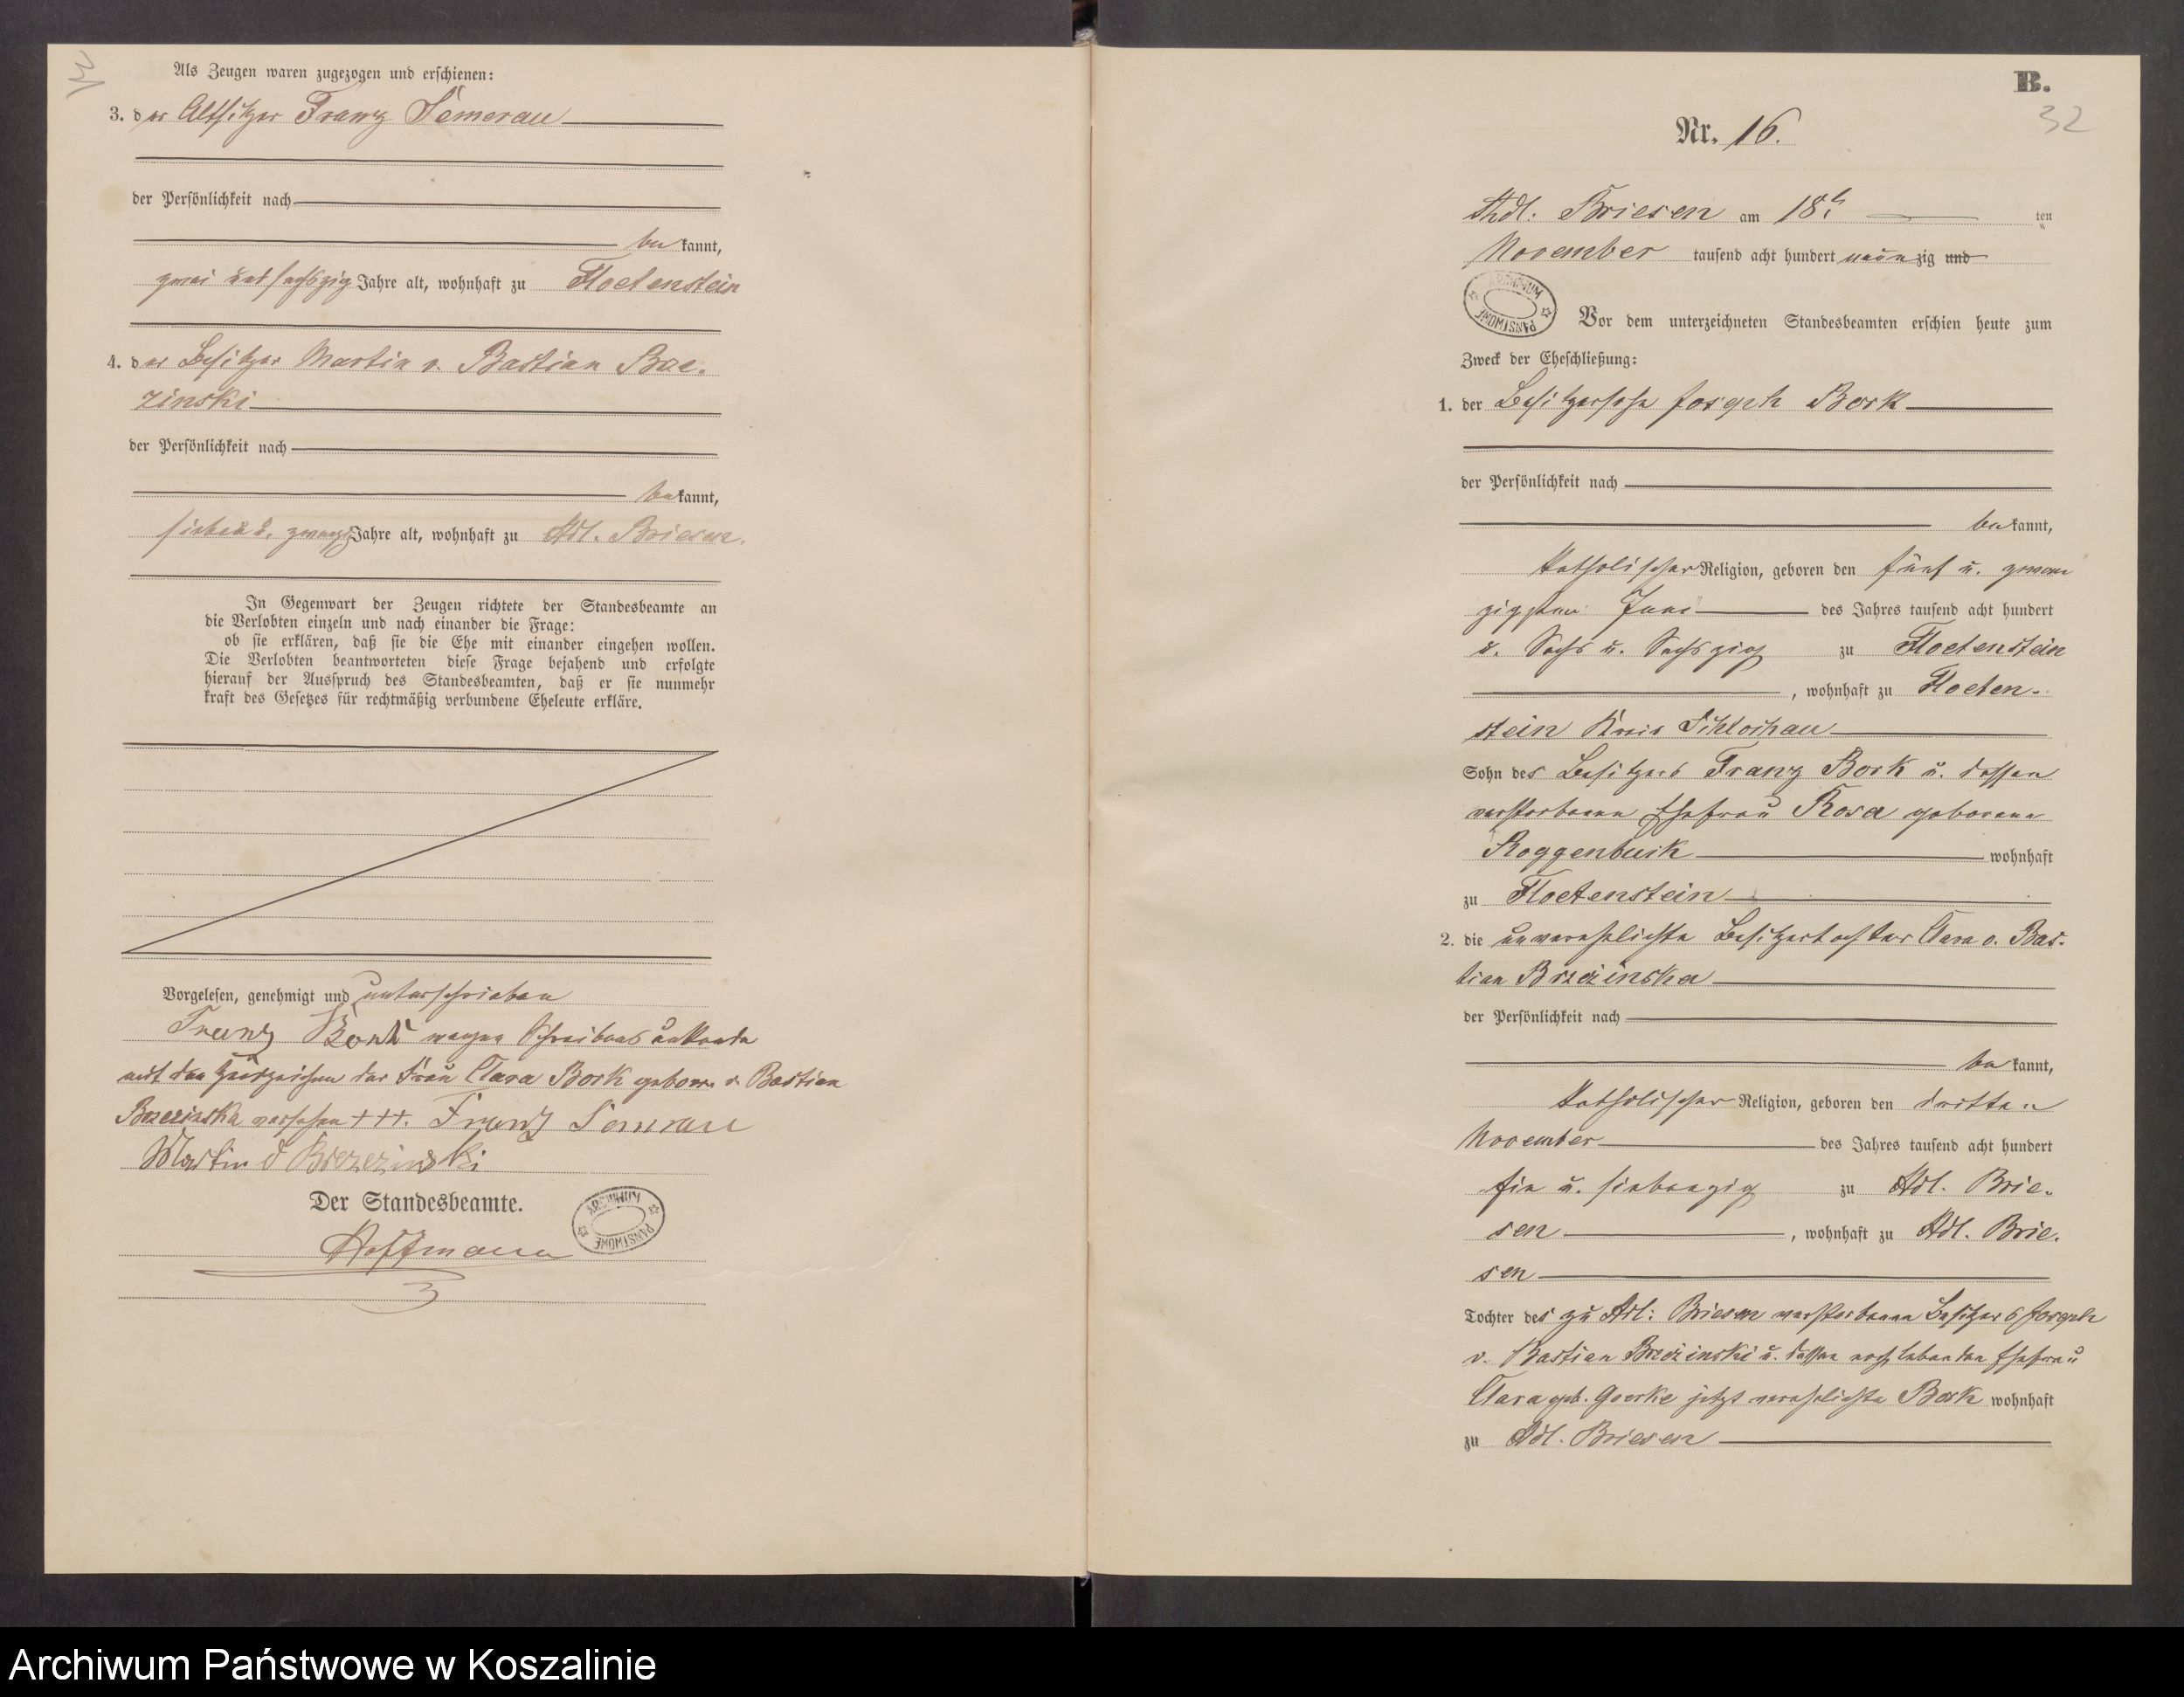 31
Als Zeugen waren zugezogen und erschienen:
3. der Altsitzer Franz Semerau
der Persönlichkeit nach
bekannt,
zwei und sechszig Jahre alt, wohnhaft zu Floetenstein
4. der Besitzer Martin v. Bastian Brze-
zinski
der Persönlichkeit nach
bekannt,
sieben u. zwanzig Jahre alt, wohnhaft zu Adl. Briesen.
In Gegenwart der Zeugen richtete der Standesbeamte an
die Verlobten einzeln und nach einander die Frage:
ob sie erklären, daß sie die Ehe mit einander eingehen wollen.
Die Verlobten beantworteten diese Frage bejahend und erfolgte
hierauf der Ausspruch des Standesbeamten, daß er sie nunmehr
kraft des Gesetzes für rechtmäßig verbundene Eheleute erkläre.
Vorgelesen, genehmigt und unterschrieben
Franz Bork wegen Schreibensunkunde
mit den Handzeichen der Frau Clara Bork geborn v. Bastian
Brzezinska versehen +++. Franz Semrau
Martin v Brzezinski
Der Standesbeamte.
ARCHIWUM PAŃSTWOWE
Hoffmann
B.
32
Nr. 16.
Adl. Briesen am 18t ten
November tausend acht hundert neunzig und
ARCHIWUM PAŃSTWOWE
Vor dem unterzeichneten Standesbeamten erschien heute zum
Zweck der Eheschließung:
1. der Besitzersohn Joseph Bork
der Persönlichkeit nach
bekannt,
katholischer Religion, geboren den fünf u. zwan
zigsten Juni des Jahres tausend acht hundert
u. Sechs u. Sechszig zu Floetenstein
, wohnhaft zu Floeten-
stein Kreis Schlochau
Sohn des Besitzers Franz Bork u. dessen
verstorbenen Ehefrau Rosa geborene
Roggenbuck wohnhaft
zu Floetenstein
2. die unverehelichte Besitzertochter Clara v. Bas-
tian Brzezinska
der Persönlichkeit nach
bekannt,
katholischer Religion, geboren den dritten
November des Jahres tausend acht hundert
Ein u. siebenzig zu Adl. Brie-
sen , wohnhaft zu Adl. Brie-
sen
Tochter des zu Adl: Briesen verstorbenen Besitzers Joseph
v. Bastian Brzezinski u. dessen noch lebenden Ehefrau
Clara geb. Goerke jetzt verehelichte Bork wohnhaft
zu Adl. Briesen
Archiwum Państwowe w Koszalinie